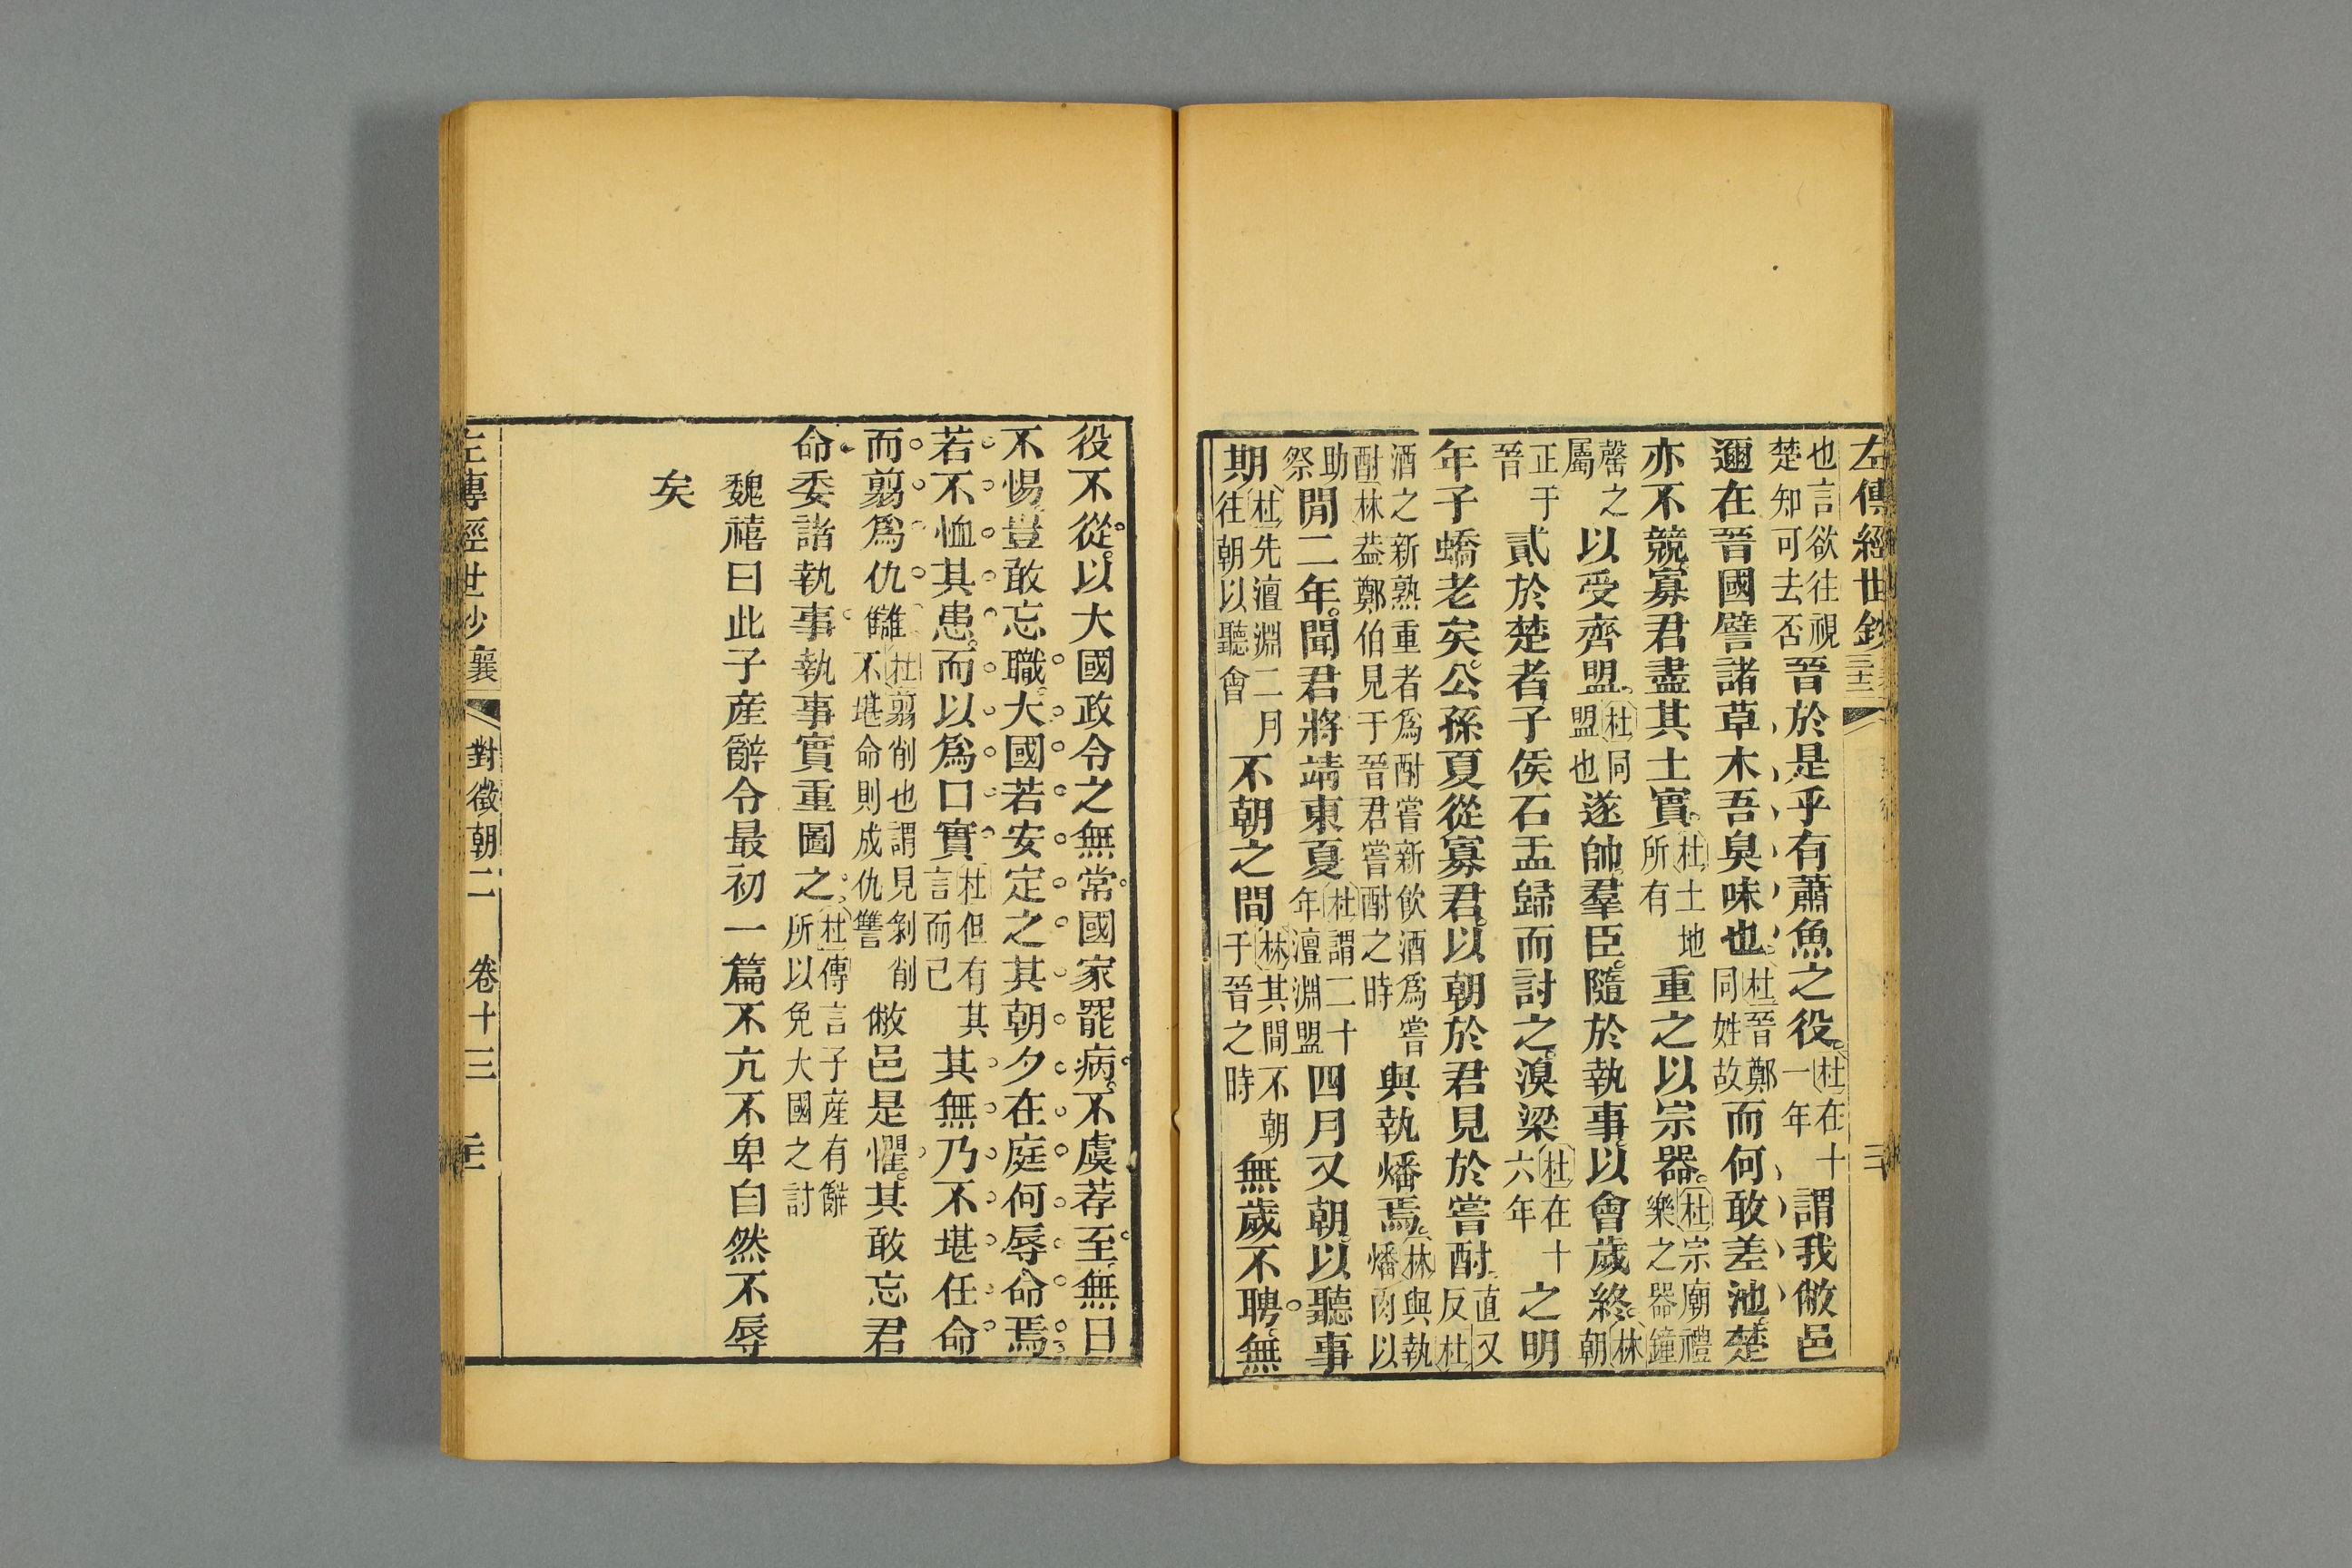 左傳經世鈔
也言欲往視楚知可去否晉於是乎有蕭魚之役杜在十一年謂我敝邑
邇在晉國譬諸草木吾臭味也杜晉鄭同姓故而何敢差池楚
亦不競寡君盡其土實杜土地所有重之以宗器杜宗廟禮樂之器鐘
罄之屬以受齊盟杜同盟也遂帥羣臣隨於執事以會歲終林朝
正于晉貳於楚者子侯石盂歸而討之湨梁杜在十六年之明
年子蟜老矣公孫夏從寡君以朝於君見於嘗酎直又反杜
酒之新熟重者為酎嘗新飲酒為嘗酎林葢鄭伯見于晉君嘗酎之時與執燔焉林與執燔肉以
助祭閒二年聞君將靖東夏杜謂二十年澶淵盟四月又朝以聽事
期杜先澶淵二月往朝以聽會不朝之間林其間不朝于晉之時無歲不聘無
役不從以大國政令之無常國家罷病不虞荐至無日
不惕豈敢忘職大國若安定之其朝夕在庭何辱命焉
若不恤其患而以為口實杜但有其言而已其無乃不堪任命
而翦為仇讎杜翦削也謂見剝削不堪命則成仇讐敝邑是懼其敢忘君
命委諸執事執事實重圖之杜傳言子產有辭所以免大國之討
魏禧曰此子產辭令最初一篇不亢不卑自然不辱
矣
左傳經世鈔 襄 對徵朝二 卷十三